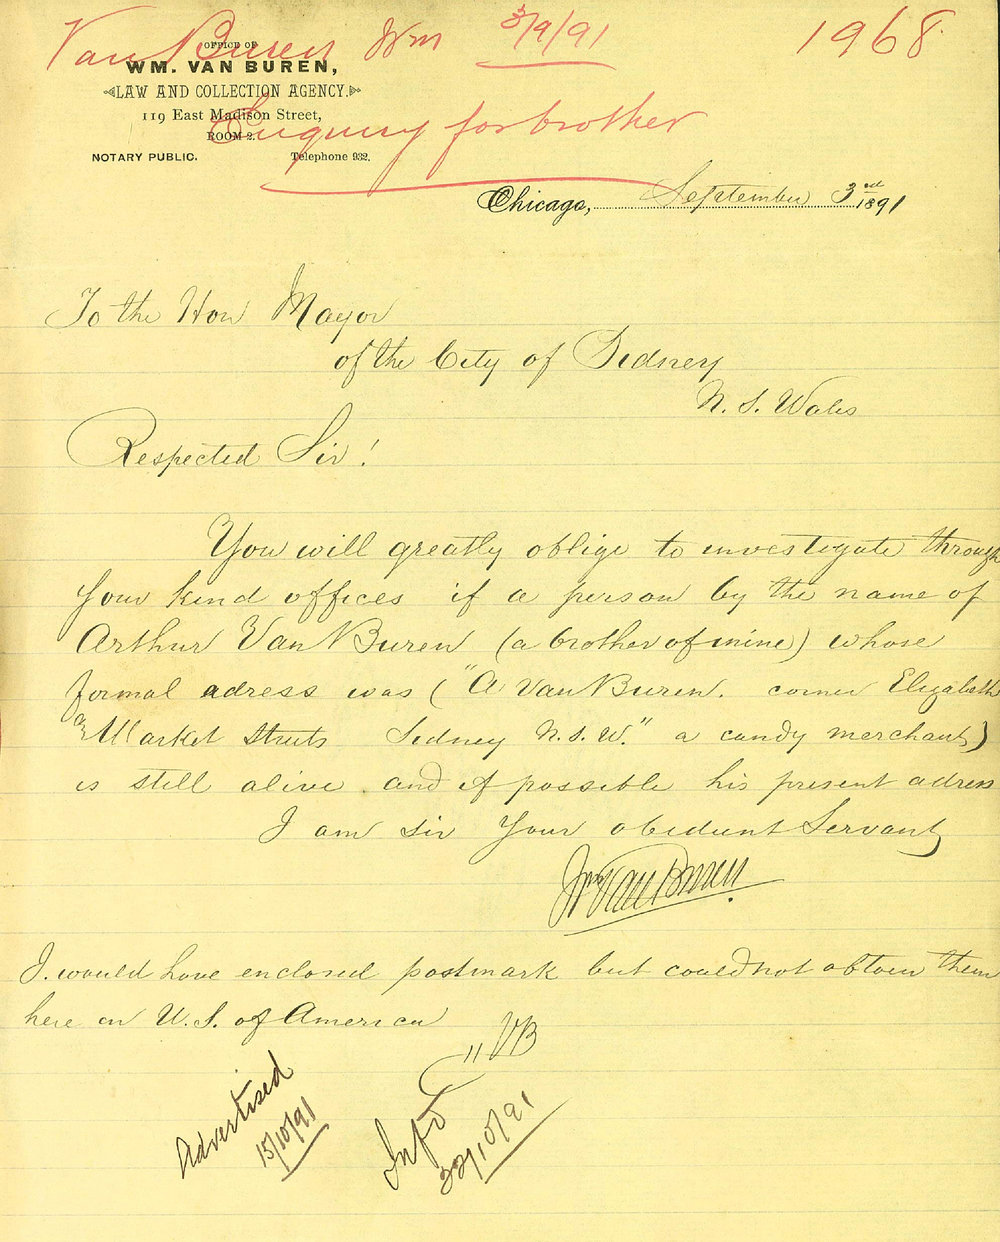 Van Buren Wm 3/9/91 1968
OFFICE OF
WM. VAN BUREN,
LAW AND COLLECTION AGENCY.
119 East Madison Street,
ROOM 2.
Enquiry for brother
NOTARY PUBLIC. Telephone 932.
Chicago, September 3rd 1891
To the Hon Mayor
of the City of Sidney
N. S. Wales
Respected Sir!
You will greatly oblige to investigate through
your kind offices if a person by the name of
Arthur Van Buren (a brother of mine) whose
formal adress was ("A Van Buren. corner Elizabeth
Market Streets Sidney N.S.W." a candy merchant)
is still alive and if possible his present adress
I am Sir Your obedient Servant
Wm Van Buren
I. would have enclosed postmark but could not obtain them
here in U.S. of America
VB
Advertised
15/10/91
Infd
/10/91